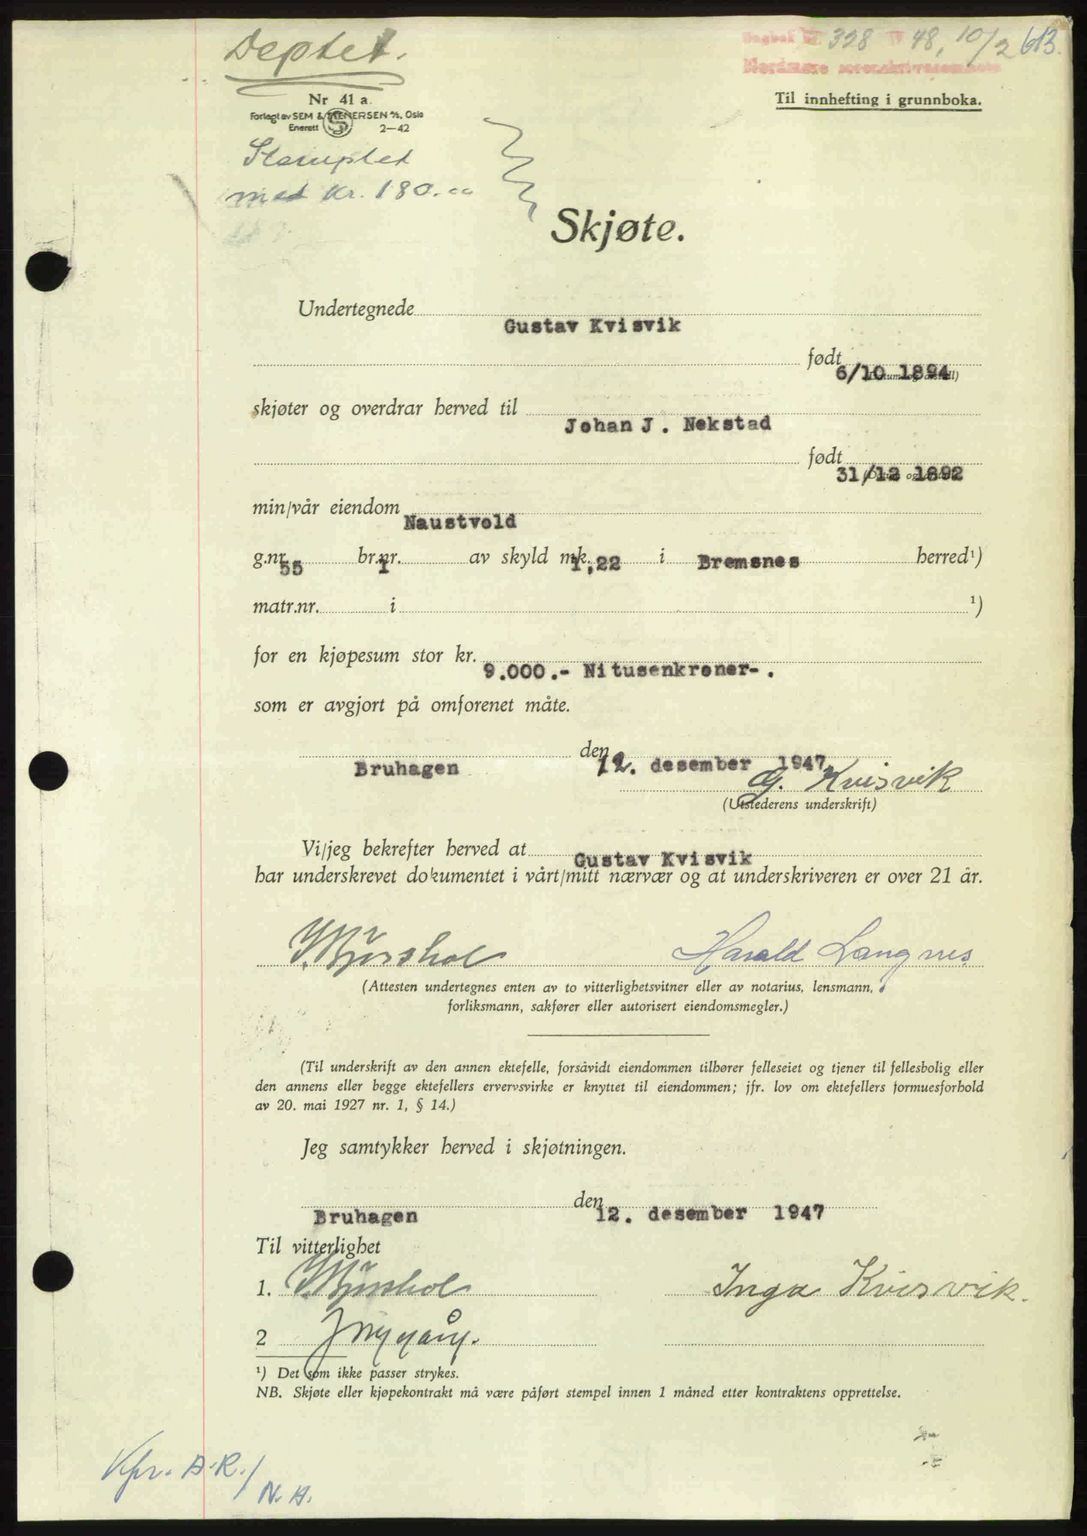 Deptet.
Dagbok nr 328 48, 10/2 613.
Nordmøre sorenskriverembete
Nr 41 a.
Til innhefting i grunnboka.
Forlagt av SEM & STENERSEN A/S, Oslo
Enerett 2—42
Stemplet
med kr. 180.00
Skjøte.
Undertegnede
Gustav Kvisvik
født
6/10 1894
skjøter og overdrar herved til
Johan J. Nekstad
født
31/12 1892
min/vår eiendom
Naustvold
g.nr. 55 br.nr. 1 av skyld mk. 1,22 i Bremsnes herred¹)
matr.nr. i ¹)
for en kjøpesum stor kr.
9.000.- Nitusenkroner-.
som er avgjort på omforenet måte.
Bruhagen den 12. desember 1947
G. Kvisvik
(Utstederens underskrift)
Vi/jeg bekrefter herved at Gustav Kvisvik
har underskrevet dokumentet i vårt/mitt nærvær og at underskriveren er over 21 år.
Harald Langnes
(Attesten undertegnes enten av to vitterlighetsvitner eller av notarius, lensmann,
forliksmann, sakfører eller autorisert eiendomsmegler.)
(Til underskrift av den annen ektefelle, forsåvidt eiendommen tilhører felleseiet og tjener til fellesbolig eller
den annens eller begge ektefellers ervervsvirke er knyttet til eiendommen; jfr. lov om ektefellers formuesforhold
av 20. mai 1927 nr. 1, § 14.)
Jeg samtykker herved i skjøtningen.
Bruhagen den 12. desember 1947
Til vitterlighet
1. Inga Kvisvik.
2
¹) Det som ikke passer strykes.
NB. Skjøte eller kjøpekontrakt må være påført stempel innen 1 måned etter kontraktens opprettelse.
Kfr. A.R./
N.A.